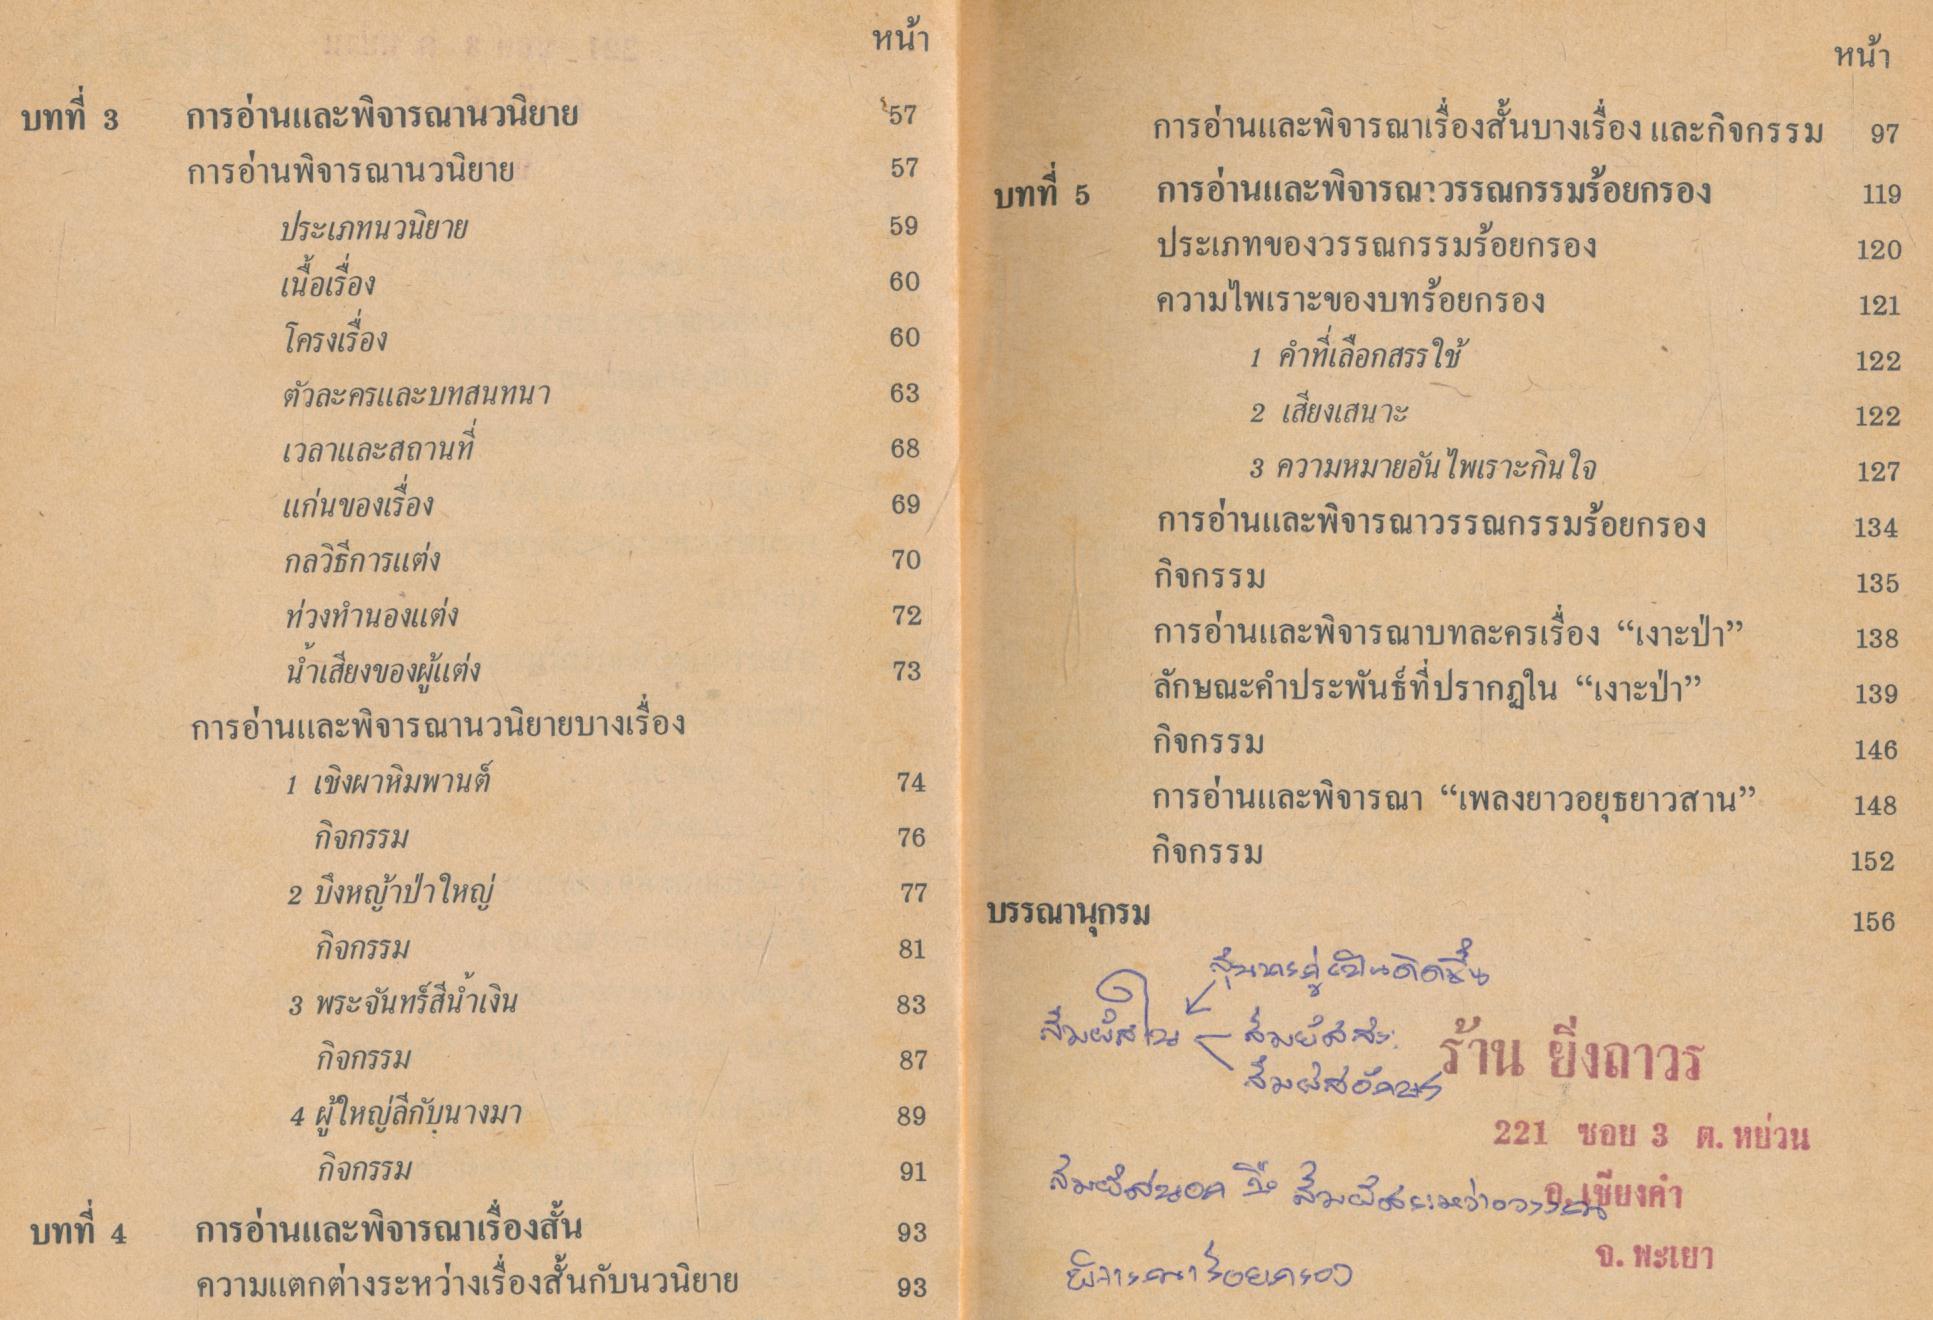 หน้า
บทที่ 3 การอ่านและพิจารณานวนิยาย 57
การอ่านพิจารณานวนิยาย 57
ประเภทนวนิยาย 59
เนื้อเรื่อง 60
โครงเรื่อง 60
ตัวละครและบทสนทนา 63
เวลาและสถานที่ 68
แก่นของเรื่อง 69
กลวิธีการแต่ง 70
ท่วงทำนองแต่ง 72
น้ำเสียงของผู้แต่ง 73
การอ่านและพิจารณานวนิยายบางเรื่อง
1 เชิงผาหิมพานต์ 74
กิจกรรม 76
2 บึงหญ้าป่าใหญ่ 77
กิจกรรม 81
3 พระจันทร์สีน้ำเงิน 83
กิจกรรม 87
4 ผู้ใหญ่ลีกับนางมา 89
กิจกรรม 91
บทที่ 4 การอ่านและพิจารณาเรื่องสั้น 93
ความแตกต่างระหว่างเรื่องสั้นกับนวนิยาย 93
หน้า
การอ่านและพิจารณาเรื่องสั้นบางเรื่อง และกิจกรรม 97
บทที่ 5 การอ่านและพิจารณาวรรณกรรมร้อยกรอง 119
ประเภทของวรรณกรรมร้อยกรอง 120
ความไพเราะของบทร้อยกรอง 121
1 คำที่เลือกสรรใช้ 122
2 เสียงเสนาะ 122
3 ความหมายอันไพเราะกินใจ 127
การอ่านและพิจารณาวรรณกรรมร้อยกรอง 134
กิจกรรม 135
การอ่านและพิจารณาบทละครเรื่อง “เงาะป่า” 138
ลักษณะคำประพันธ์ที่ปรากฏใน “เงาะป่า” 139
กิจกรรม 146
การอ่านและพิจารณา “เพลงยาวอยุธยาวสาน” 148
กิจกรรม 152
บรรณานุกรม 156
สัมผัสใน
สัมผัสสระ
สัมผัสอักษร
ร้าน ยิ่งถาวร
221 ซอย 3 ต. หย่วน
อ. เชียงคำ
จ. พะเยา
สัมผัสนอก คือ สัมผัสระหว่างวรรค
พิจารณาร้อยกรอง